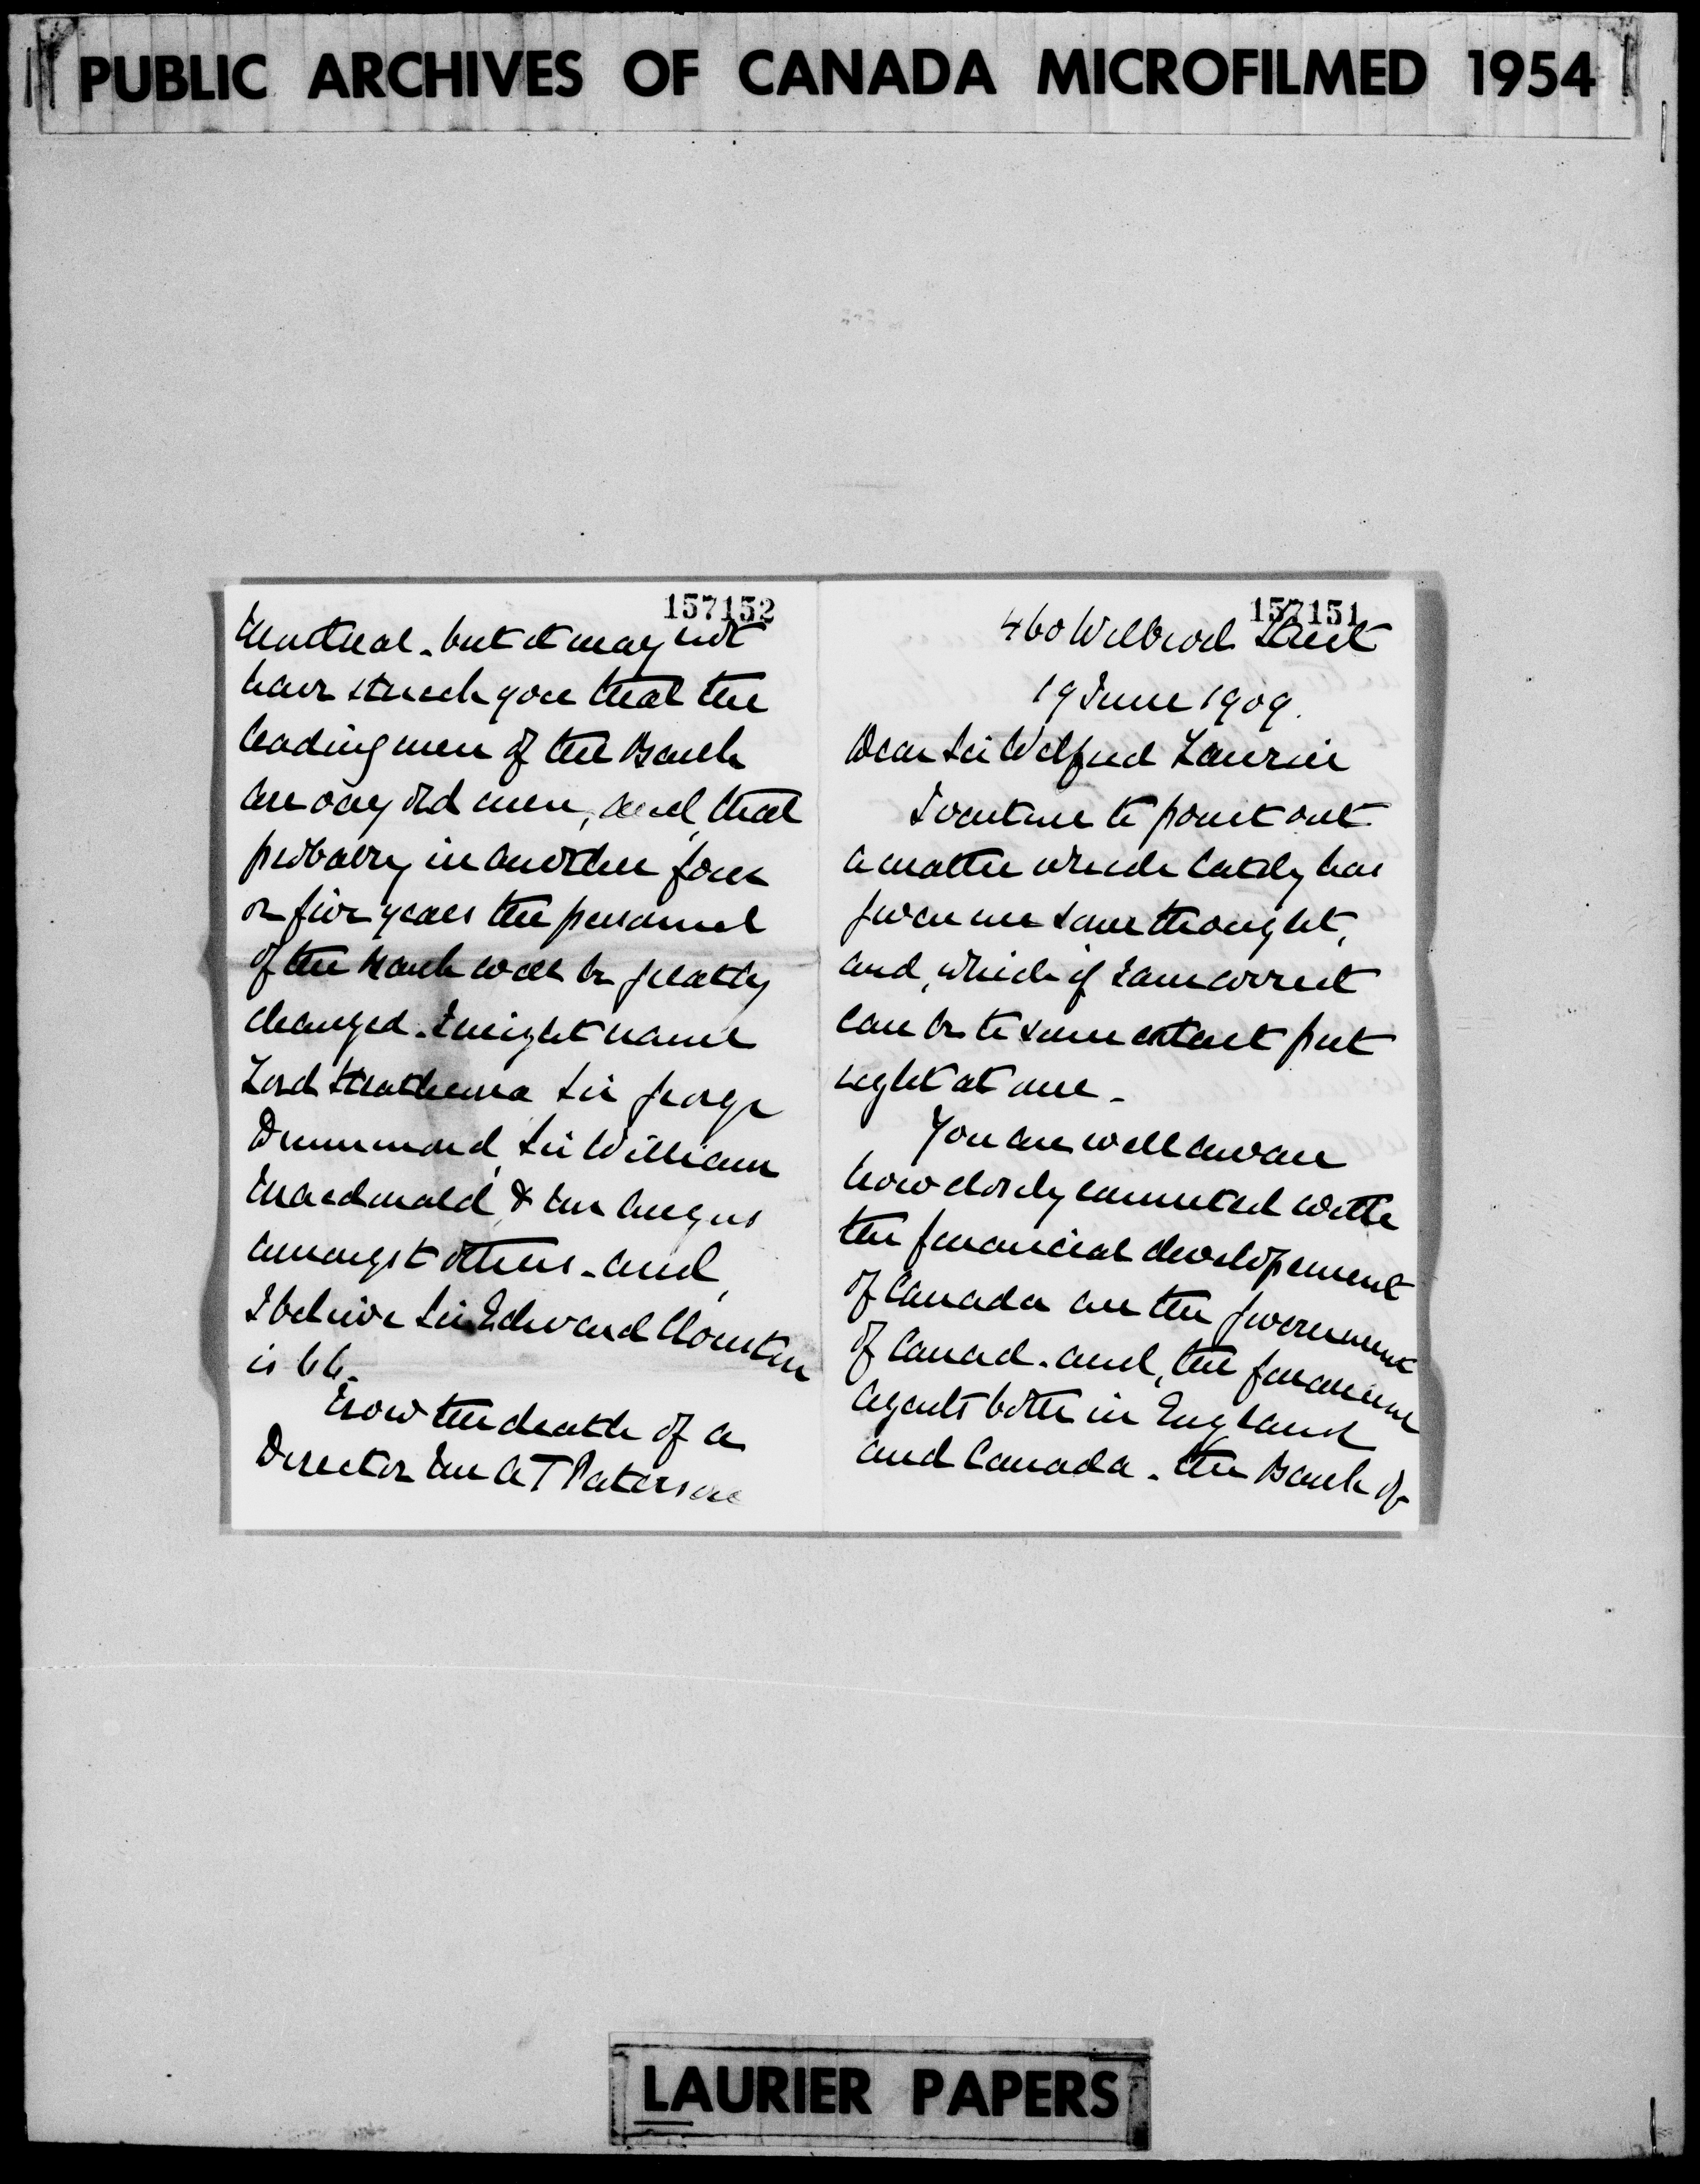 PUBLIC ARCHIVES OF CANADA MICROFILMED 1954
157151
460 Wilbrod Street
19 June 1909.
Dear Sir Wilfred Laurier
I venture to point out
a matter which lately has
given me some thought,
and, which if I am correct
can be to some extent put
right at once.
You are well aware
how closely connected with
the financial developement
of Canada are the government
of Canad. and, the financial
agents both in England
and Canada. the Bank of
157152
Montreal. but it may not
have struck you that the
leading men of the Bank
are very old men, and, that
probably in another four
or five years the personnel
of the Bank will be greatly
changed. I might name
Lord Strathcona Sir George
Drummond, Sir William
Macdonald, & Mr Angus
amongst others. and,
I believe Sir Edward Clouston
is 66.
Now the death of a
Director Mr A T Paterson
LAURIER PAPERS